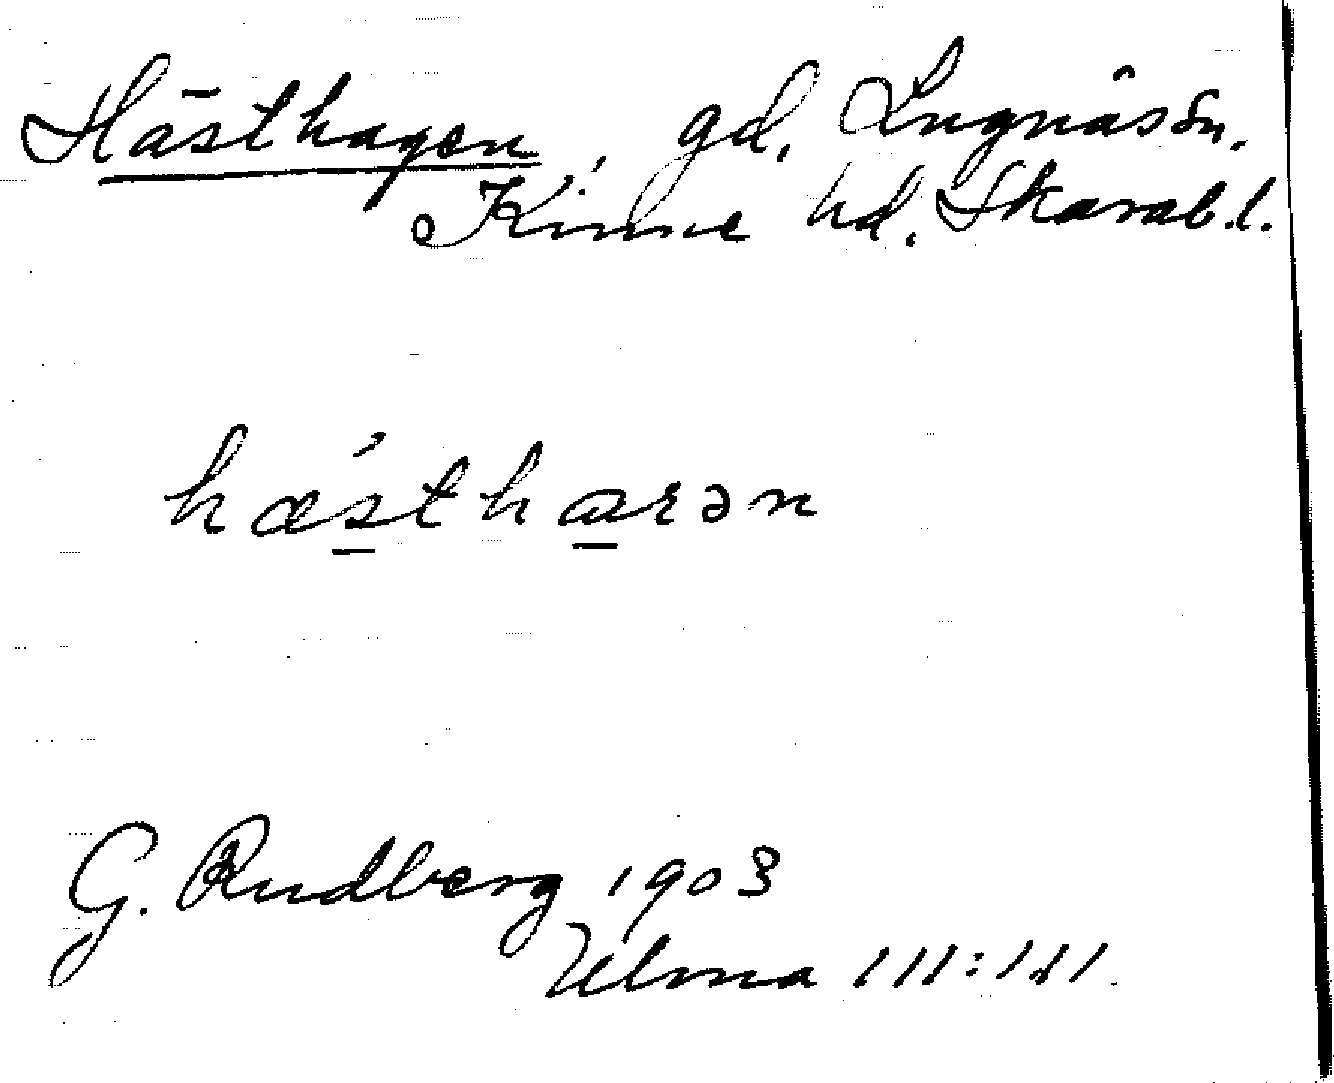 Hästhagen, gd, Lugnås sn.
Kinne hd, Skarab.l.
hæ´stharən
G. Rudberg 1903
Ulma 111:141.